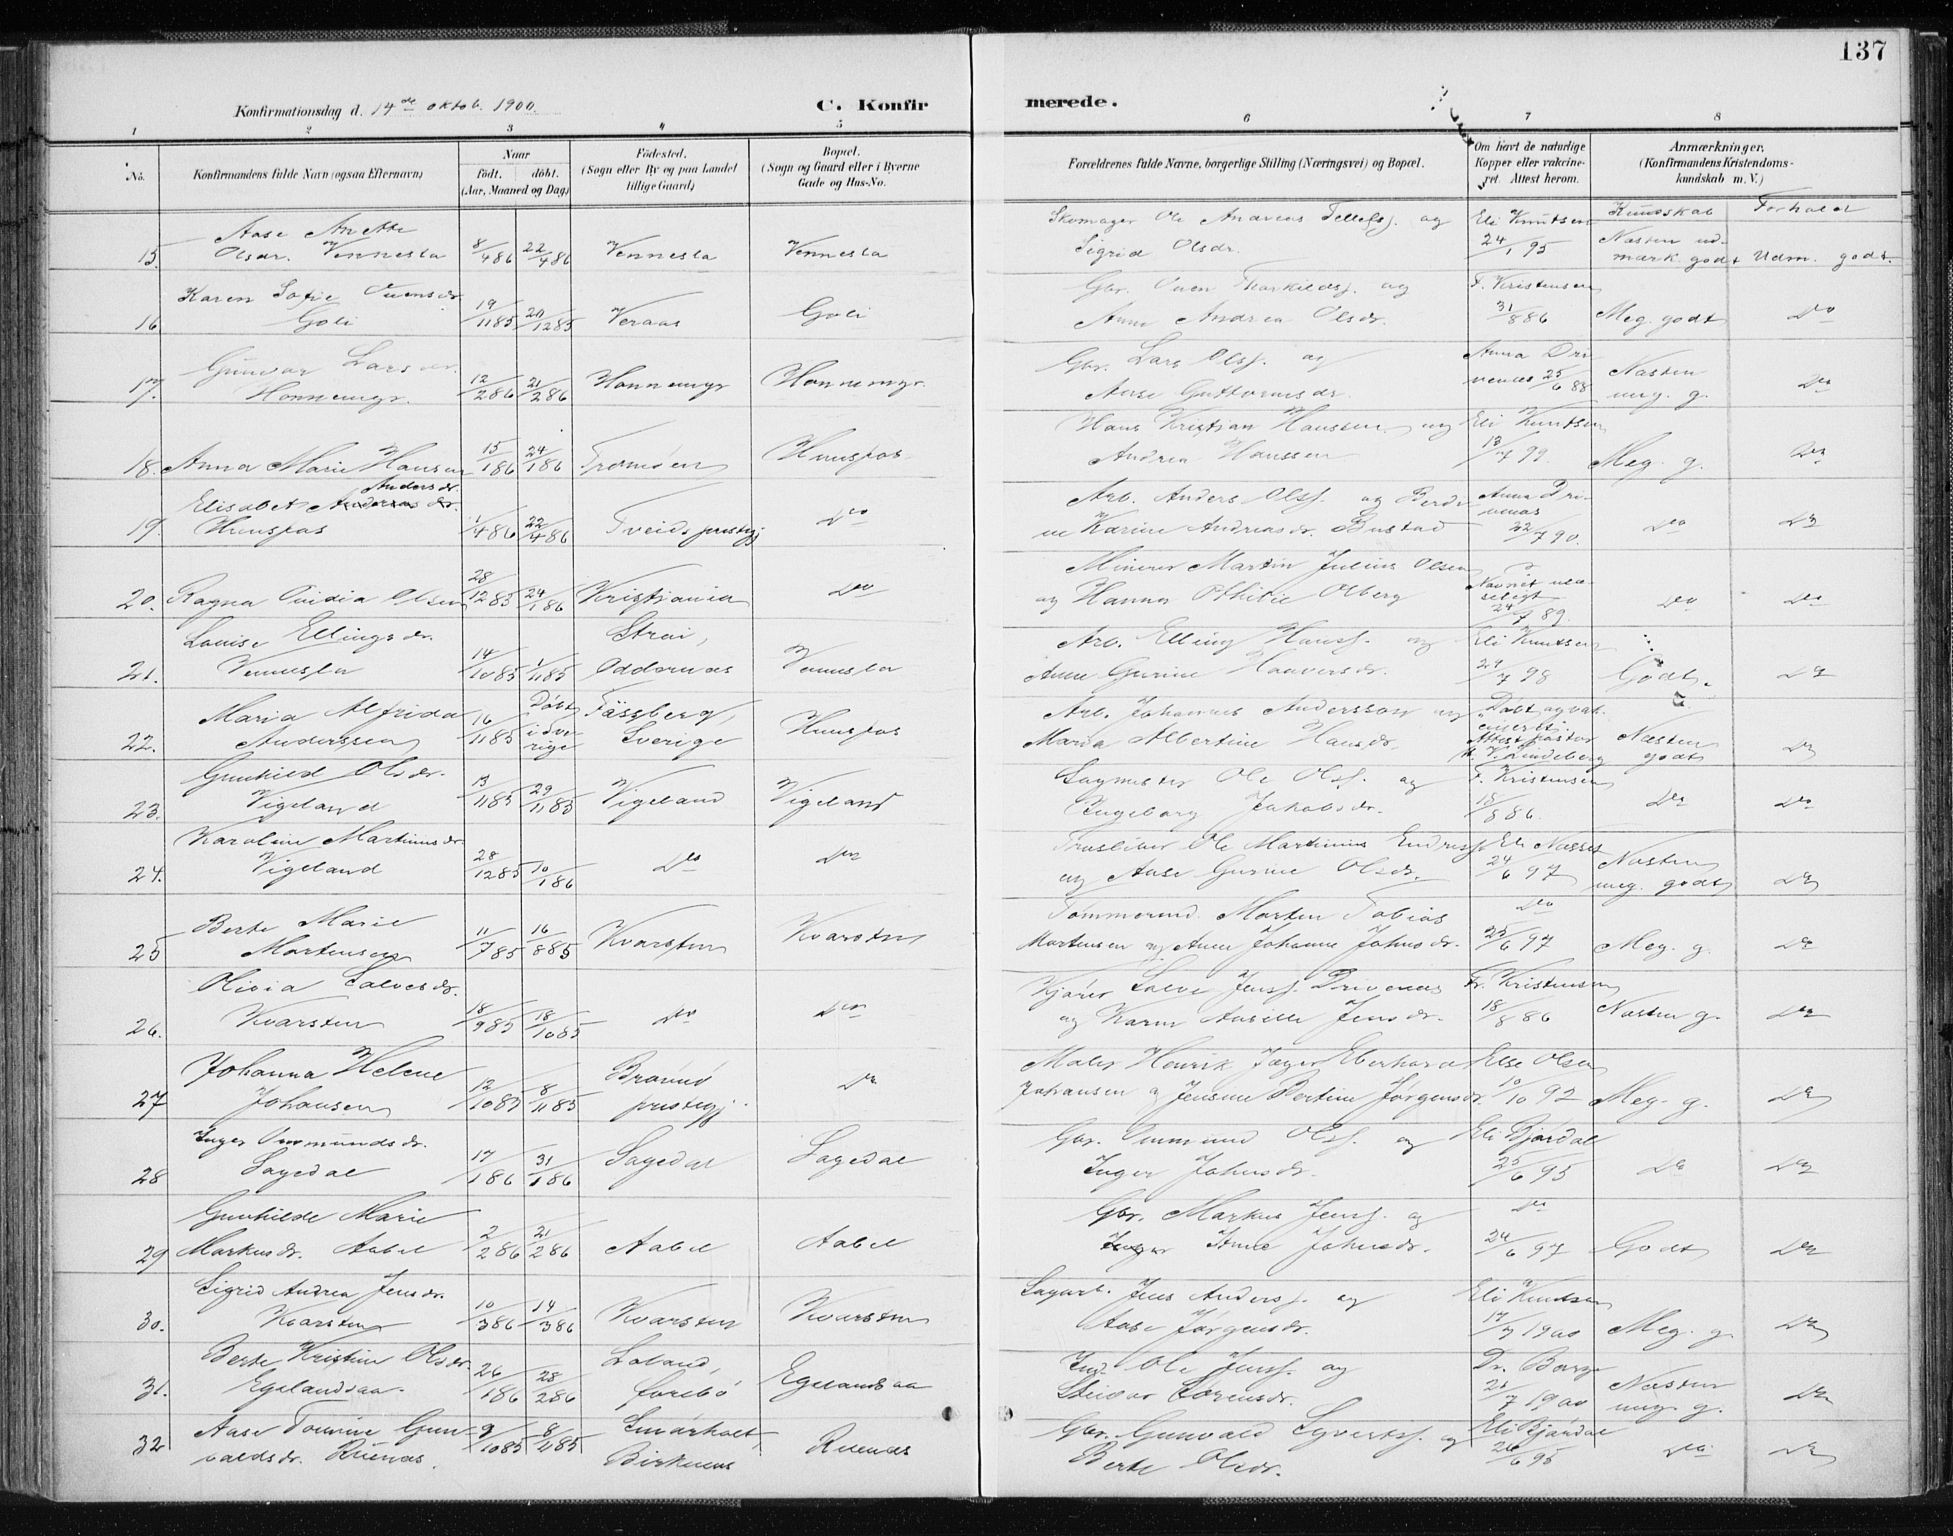 137
Konfirmationsdag d. 14de oktob. 1900.
C. Konfirmerede.
1 2 3 4 5 6 7 8
No.
Konfirmandens fulde Navn (ogsaa Efternavn)
Naar
födt. döbt.
(Aar, Maaned og Dag)
Födested.
(Sogn eller By og paa Landet
tillige Gaard)
Bopæl.
(Sogn og Gaard eller i Byerne
Gade og Hus-No.
Forældrenes fulde Navne, borgerlige Stilling (Næringsvei) og Bopæl.
Om havt de naturlige
Kopper eller vakcine-
ret. Attest herom.
Anmærkninger,
(Konfirmandens Kristendoms-
kundskab m. V.)
Kundskab Forhold
Aase Anette Skomager Ole Andreas Tellefsj. og Eli Knutsen
15. Olsdr. Vennesla 8/4 86 22/4 86 Vennesla Vennesla Sigrid Olsdr. 24/1 95 Næsten ud-
mærk. godt Udm. godt.
Karen Sofie Gbr. Terkildsj. og F. Kristensen
16 Goli 19/11 85 20/12 85 Veraas Goli Anne Andrea Olsdr. 31/8 86 Meg. godt Do
Gunvor Larsdr. Gbr. Lars Olsj. og Anna Dri-
17. Honnemyr. 12/2 86 21/2 86 Honnemyr Honnemyr. Aase Guttormsdr. venæs 25/6 88 Næsten
meg. g. Do
Hans Kristian Hanssen og Eli Knutsen
18. Anna Marie Hansen 15/1 86 24/1 86 Tromøen Hunsfos Andrea Hanssen 13/7 99. Meg. g. Do
Andersdr.
Elisabet Andreas dr. Arb. Anders Olsj. og Berdi- Anna Dri-
19. Hunsfos 1/4 86 22/4 86 Tveids prestegj Do ne Karine Andreasdr. Bustad venæs
22/7 90. Do Do
Minerer Martin Julius Olsen
20. Ragna Ovidia Olsen 28/12 85 24/1 86 Kristiania Do og Hanna Othilie Olberg Navnet ulæ-
seligt
24/7 89. Do Do
Louise Ellingsdr. Strai, Arb. Elling Hansj. og Eli Knutsen
21. Vennesla 14/10 85 1/11 85 Oddernæs Vennesla Anne Gurine Haaversdr. 29/7 98 Godt. Do
Maria Alfrida Døbt Fässberg, Arb. Johannes Andersson og "Døbt og vak-
22. Andersen 16/11 85 i Sve-
rige Sverige Hunsfos Maria Albertine Hansdr. cineret".
Attest pastor
Lindeberg Næsten
godt Do
Gunhild Olsdr. Sagmester Ole Olsj. og F. Kristensen
23. Vigeland 13/11 85 29/11 85 Vigeland Vigeland Ingeborg Jakobsdr. 18/8 86. Do Do
Karoline Martinusdr. Træsliber Ole Martinus Endresj. Eli Næsset
24. Vigeland 28/12 85 10/1 86 Do Do og Aase Gurine Olsdr. 24/6 97 Næsten
meg. godt Do
Berte Marie Tømmermd. Morten Tobias Do
25 Mortensen 11/7 85 16/8 85 Kvarsten Kvarsten Mortensen og Anne Johanne Johnsdr. 25/6 97 Meg. g. Do
Olivia Salvesdr. Kjører Salve Jensj. Drivenæs Fr. Kristensen
26. Kvarsten 18/9 85 18/10 85 Do Do og Karen Jensdr. 18/8 86 Næsten g. Do
Johanna Helene Brønnø Maler Henrik Jæger Eberhard Else Olsen
27 Johansen 12/10 85 8/11 85 prestegj. Do Johansen og Jensine Bertine Jørgensdr. 10/10 92 Meg. g. Do
Inger Ommundsdr. Gbr. Ommund Olsj. og Eli Bjørdal
28 Sagedal 17/1 86 31/1 86 Sagedal Sagedal Inger Johnsdr. 25/6 95 Do Do
Gunhilde Marie Gbr. Markus Jensj. og Do
29 Markusdr. Aabel 2/2 86 21/2 86 Aabel Aabel Inger Anne Johnsdr. 24/6 97 Godt Do
Sigrid Andrea Jensdr. Sagarb. Jens Andersj. og Eli Knudsen
30. Kvarsten 10/3 86 14/3 86 Kvarsten Kvarsten Aase Jørgensdr. 17/7 1900 Meg. g. Do
Berte Kristine Olsdr. Loland, Ind. Ole Jensj. og Dr. Borge
31. Egelandsaa. 26/1 86 28/2 86 Egelandsaa Sørensdr. 21/7 1900 Næsten
meg. g. Do
Aase Tomine Gun- Smørholt, Gbr. Gunvald Syvertsj. og Eli Bjørdal
32 valdsdr. Ruenæs. 9/10 85 8/11 85 Birkenes Ruenæs Berte Olsdr. 26/6 95 Do Do